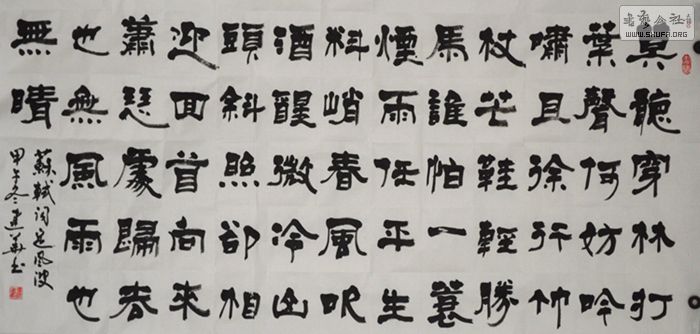 莫聽穿林打
葉聲何妨吟
嘯且徐行竹
杖芒鞋輕勝
馬誰怕一蓑
煙雨任平生
料峭春風吹
酒醒微冷山
頭斜照卻相
迎回首向來
蕭瑟處歸去
也無風雨也
無晴
蘇軾詞定風波
甲午冬建華書
WWW.SHUFA.ORG